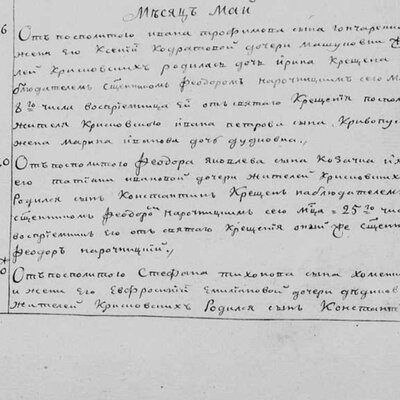 Мѣсяцъ Май
6 Отъ посполитого ивана трофимова сына гончаренка
жени его Ксенїи Кодратовой дочери
лей Крисковскихъ родилась дочь ирина Крещена
блюдателемъ Сщенникомъ Феодоромъ нарочницкимъ сего
8го числа воспрїемница ей отъ святаго Крещенїя поспол
жителя Крисковского ивана петрова сына Кривопус
жена марина иванова дочь
0 Отъ посполитого Феодора яковлева сына Козачка и
его татїани ивановой дочери жителей Крисковских
Родился сынъ Константинъ Крещенъ наблюдателемъ
сщенникомъ Феодоромъ нарочницкимъ сего мца 25го
воспрїемникъ его отъ святаго Крещенїя оний же Сщенн
Феодоръ нарочницкїй
0 Отъ посполитого Стефана тихонова сына
и жени его Евфросинїи Емилїановой дочери
жителей Крисковскихъ Родился сынъ Константи